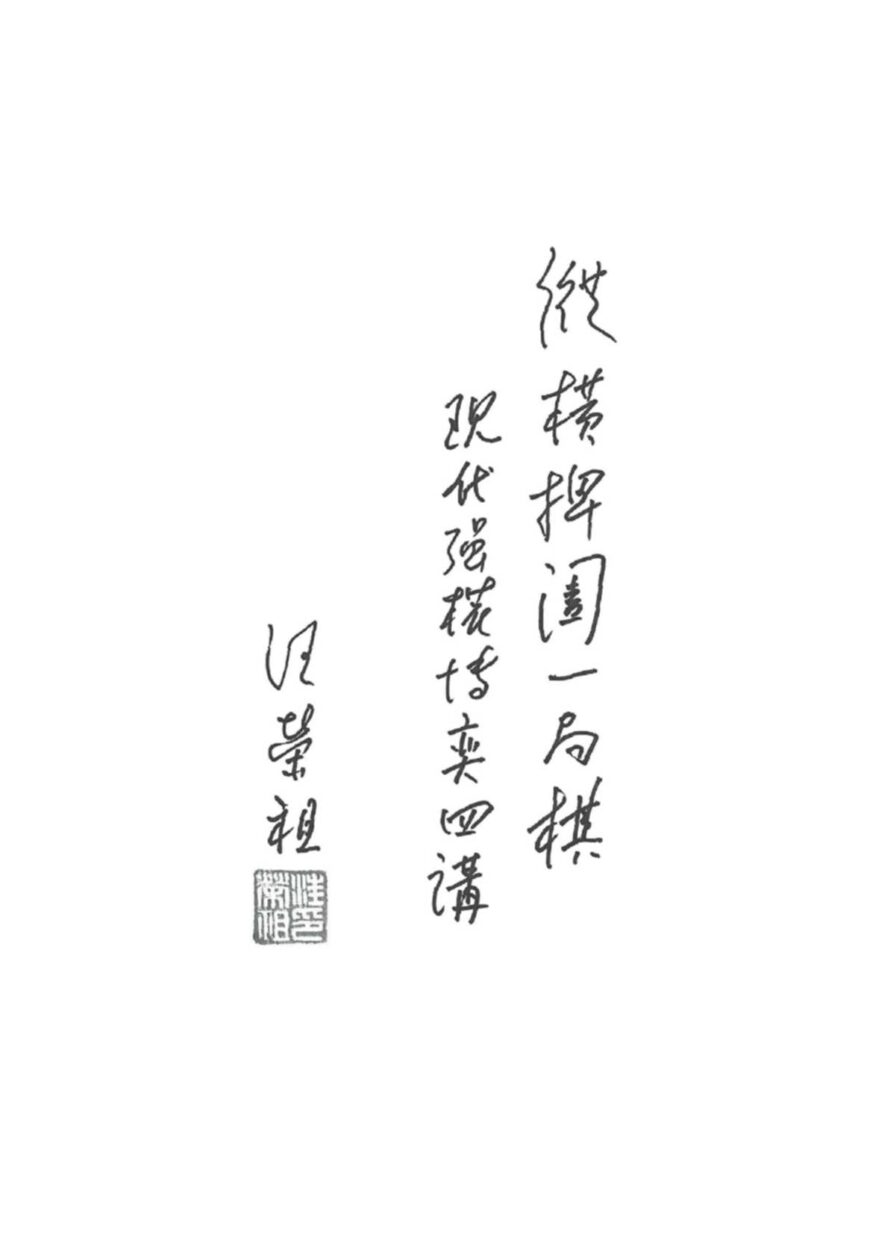 縱橫捭闔一局棋
現代強權博奕四講
汪榮祖
汪榮祖印